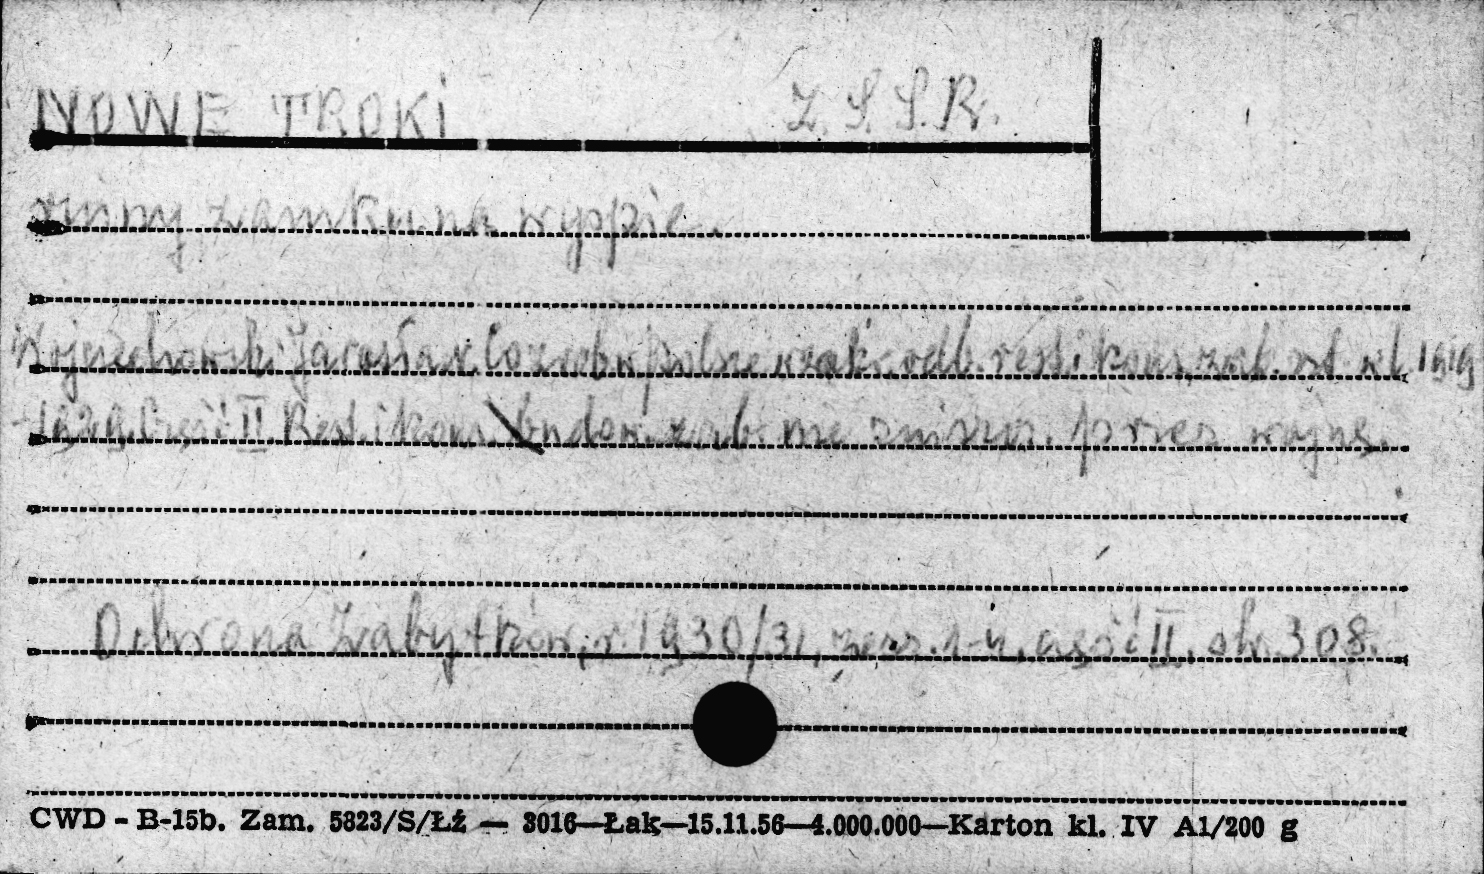 NOWE TROKI Z.S.S.R.
ruiny zamku na wyspie.
Wojciechowski Jarosław. Co zrob. w polsce w zakr. odb. rest i kons. zab. szt. w l. 1919
- 1929. Część II Rest. i kons. budow. zab. nie zniszcz. przez wojnę.
Ochrona Zabytków, r. 1930/31, zesz. 1-4, część II, str. 308.
CWD - B-15b. Zam. 5823/S/Łź — 3016—Łąk—15.11.56—4.000.000—Karton kl. IV A1/200 g